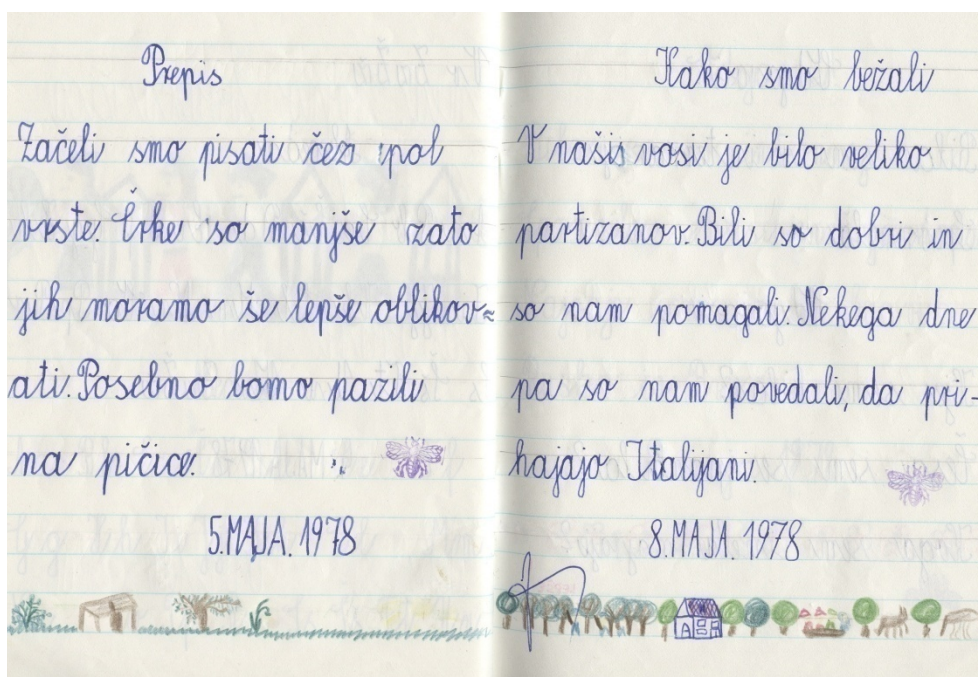 Prepis
Začeli smo pisati čez pol
vrste. Črke so manjše zato
jih moramo še lepše oblikov=
ati. Posebno bomo pazili
na pičice.
5. MAJA. 1978
Kako smo bežali
V našis vasi je bilo veliko
partizanov. Bili so dobri in
so nam pomagali. Nekega dne
pa so nam povedali, da pri-
hajajo Italijani.
8. MAJA. 1978